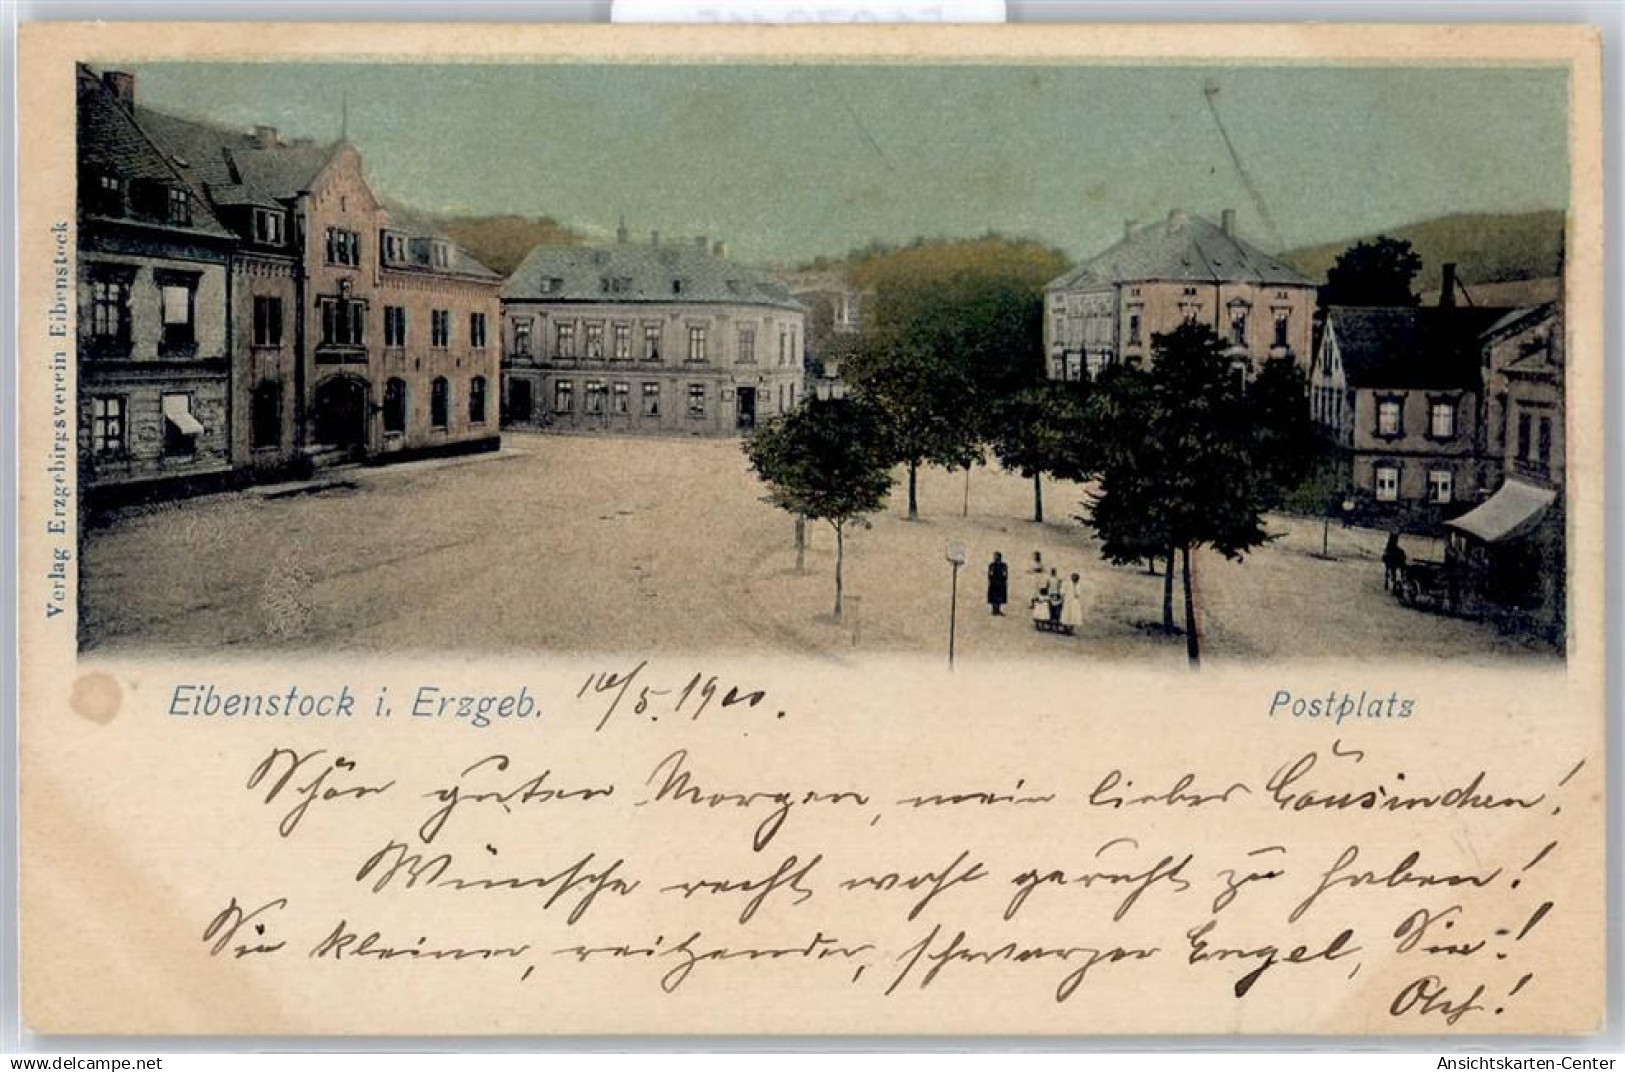 Verlag Erzgebirgsverein Eibenstock
Eibenstock i. Erzgeb. 10/5. 1900.
Postplatz
Schön guten Morgen, mein liebes Cousinchen!
Wünsche recht wohl geruht zu haben!
Sie kleiner, reitzender, schwarzer Engel, Sie!
Ansichtskarten-Center